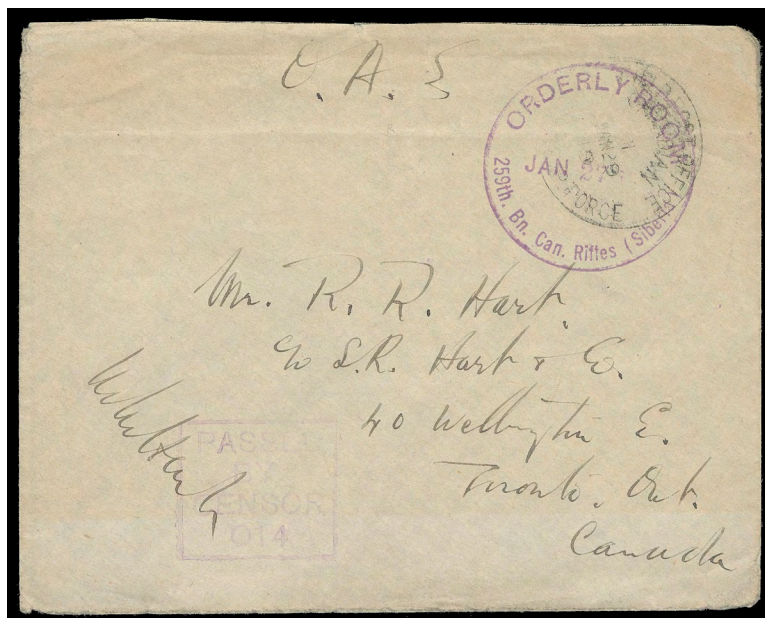 O. A. S
ORDERLY ROOM
JAN 27
259th. Bn. Can. Rifles (Siber
FORCE
Mr. R. R. Hart.
c/o S.R. Hart & Co.
40 Wellington E.
Toronto, Ont.
Canada
PASSED
BY
CENSOR
014